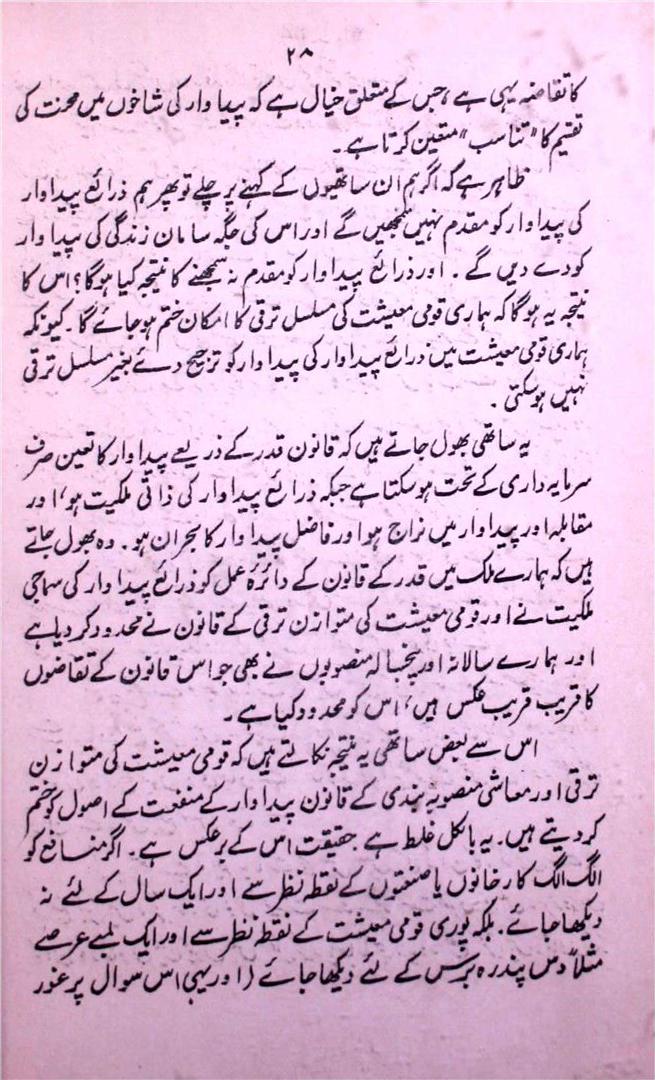 ۲۸
کا تقاضہ یہی ہے، جس کے متعلق خیال ہے کہ پیداوار کی شاخوں میں محنت کی
تقسیم کا "تناسب" متعین کرتا ہے۔
ظاہر ہے کہ اگر ہم ان ساتھیوں کے کہنے پر چلے تو پھر ہم ذرائع پیداوار
کی پیداوار کو مقدم نہیں سمجھیں گے اور اس کی جگہ سامان زندگی کی پیداوار
کو دے دیں گے۔ اور ذرائع پیداوار کو مقدم نہ سمجھنے کا نتیجہ کیا ہوگا؟ اس کا
نتیجہ یہ ہوگا کہ ہماری قومی معیشت کی مسلسل ترقی کا امکان ختم ہو جائے گا۔ کیونکہ
ہماری قومی معیشت میں ذرائع پیداوار کی پیداوار کو ترجیح دئے بغیر مسلسل ترقی
نہیں ہو سکتی۔
یہ ساتھی بھول جاتے ہیں کہ قانون قدر کے ذریعے پیداوار کا تعین صرف
سرمایہ داری کے تحت ہو سکتا ہے جبکہ ذرائع پیداوار کی ذاتی ملکیت ہو، اور
مقابلہ اور پیداوار میں نراج ہو اور فاضل پیداوار کا بحران ہو۔ وہ بھول جاتے
ہیں کہ ہمارے ملک میں قدر کے قانون کے دائرۂ عمل کو ذرائع پیداوار کی سماجی
ملکیت نے اور قومی معیشت کی متوازن ترقی کے قانون نے محدود کر دیا ہے
اور ہمارے سالانہ اور پنجسالہ منصوبوں نے بھی جو اس قانون کے تقاضوں
کا قریب قریب عکس ہیں، اس کو محدود کیا ہے۔
اس سے بعض ساتھی یہ نتیجہ نکالتے ہیں کہ قومی معیشت کی متوازن
ترقی اور معاشی منصوبہ بندی کے قانون پیداوار کے منفعت کے اصول کو ختم
کر دیتے ہیں۔ یہ بالکل غلط ہے حقیقت اس کے برعکس ہے۔ اگر منافع کو
الگ الگ کارخانوں یا صنعتوں کے نقطہ نظر سے اور ایک سال کے لئے نہ
دیکھا جائے۔ بلکہ پوری قومی معیشت کے نقطہ نظر سے اور ایک لمبے عرصے
مثلاً دس پندرہ برس کے لئے دیکھا جائے (اور یہی اس سوال پر غور